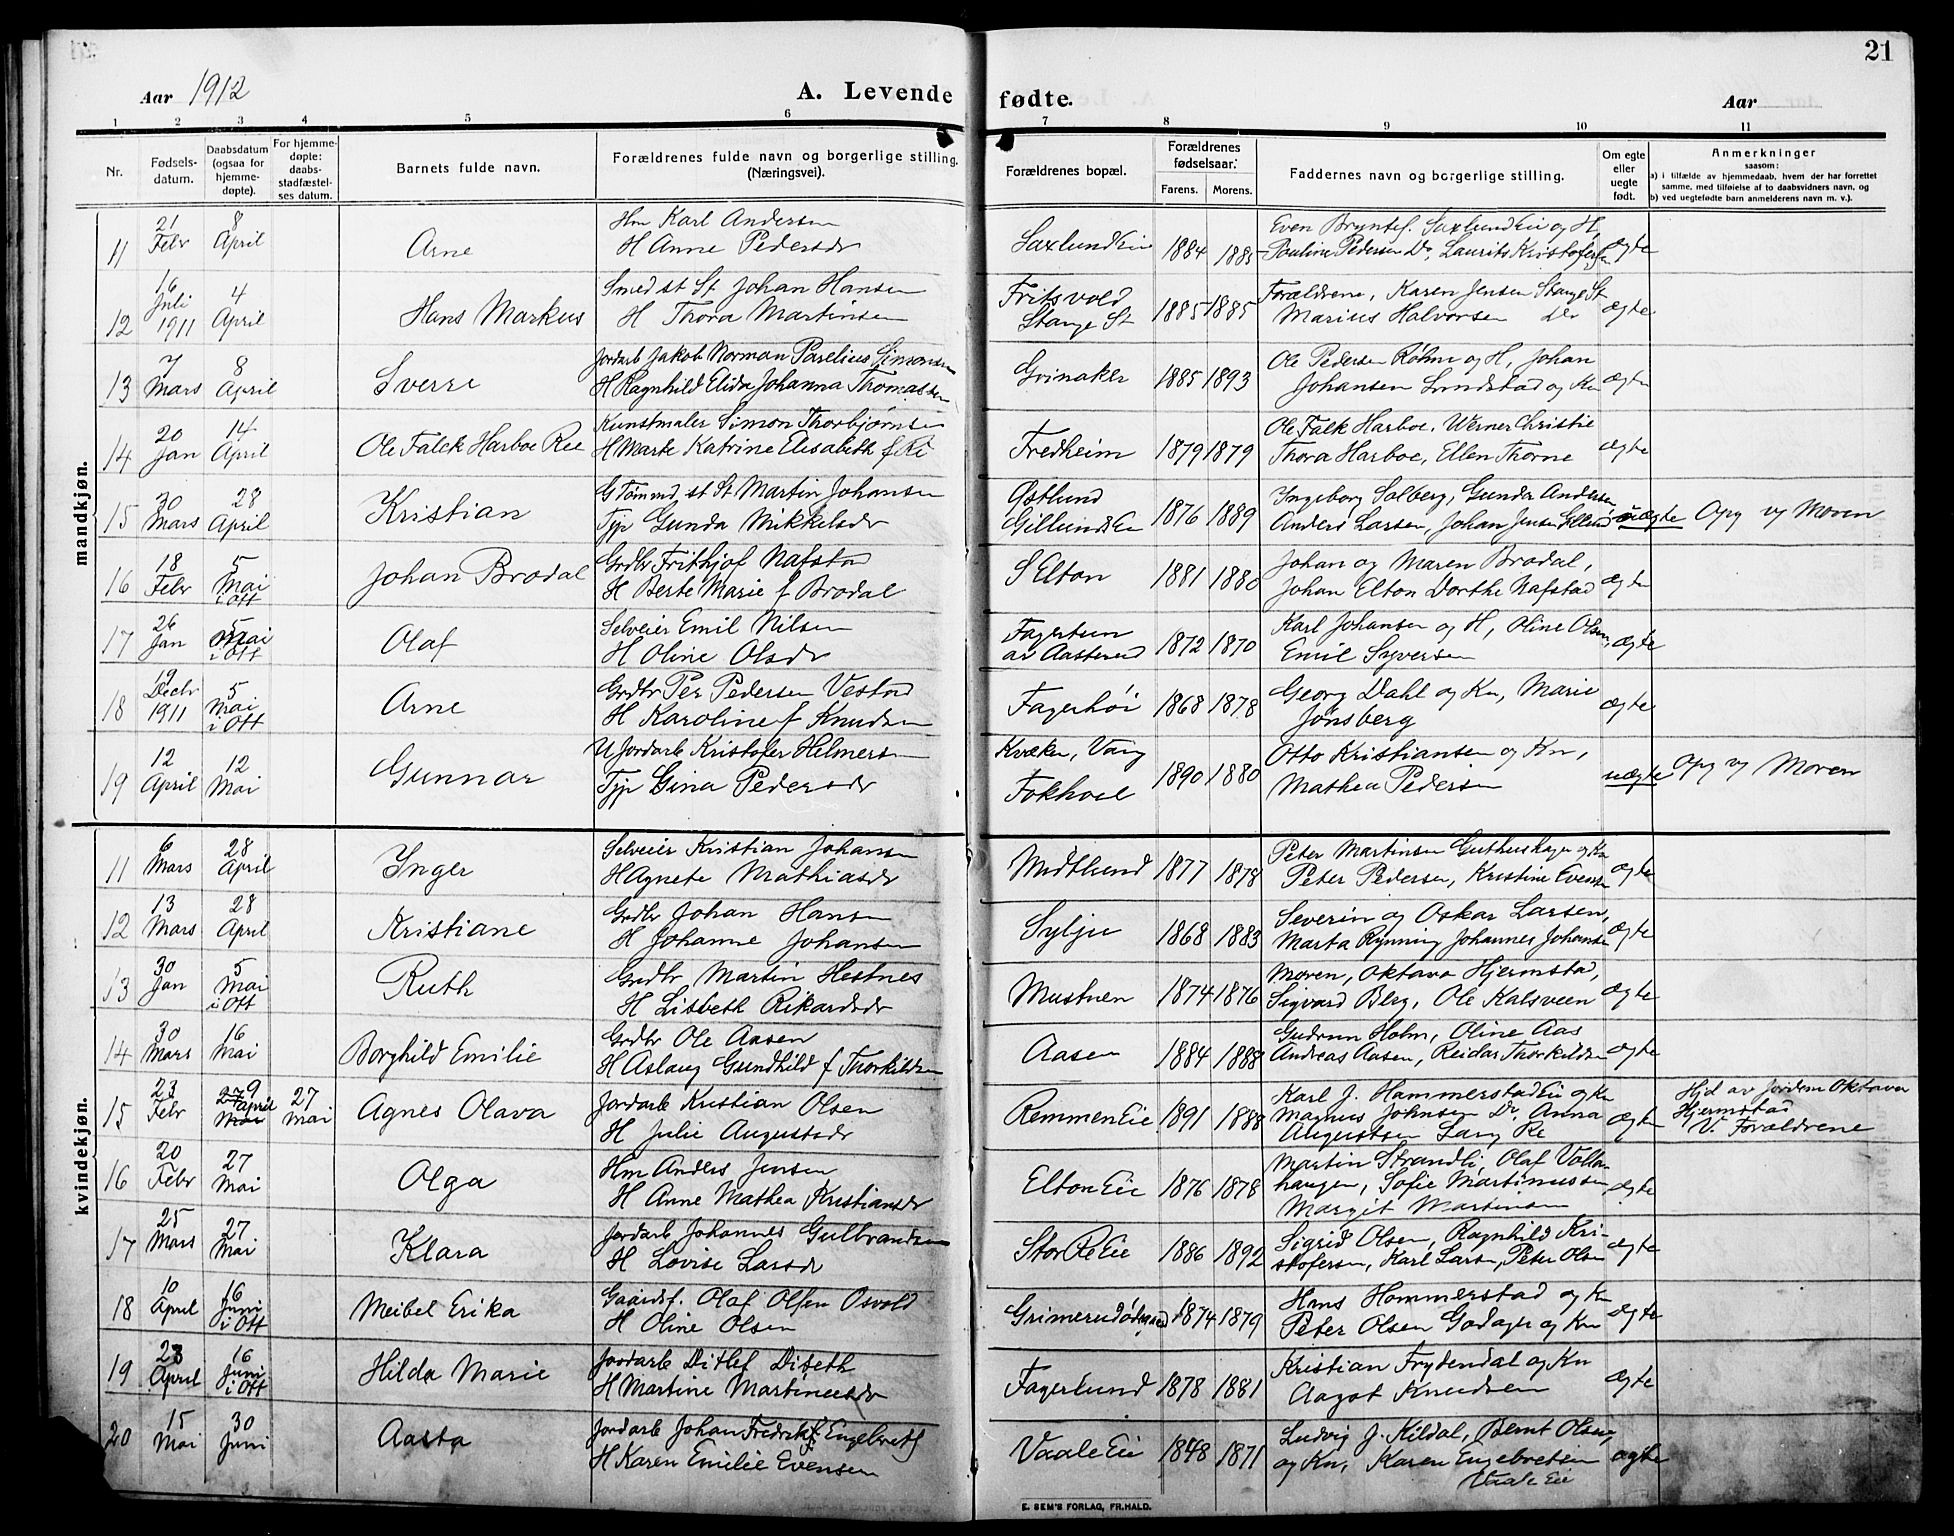 21
Aar 1912
A. Levende
fødte.
Aar
1 2 3 4 5 6 7 8 9 10 11
Nr.
Fødsels-
datum.
Daabsdatum
(ogsaa for
hjemme-
døpte).
For hjemme-
døpte:
daabs-
stadfæstel-
ses datum.
Barnets fulde navn.
Forældrenes fulde navn og borgerlige stilling.
(Næringsvei).
Forældrenes bopæl.
Forældrenes
fødselsaar:
Farens. Morens.
Faddernes navn og borgerlige stilling.
Om egte
eller
uegte
født.
Anmerkninger
saasom:
a) i tilfælde av hjemmedaab, hvem der har forrettet
samme, med tilføielse af to daabsvidners navn, og
b) ved uegtefødte barn anmelderens navn m. v.).
mandkjøn.
11 21 Febr 8 April Arne
Hm Karl Andersen
H Anne Pedersdr
Saxlund Eie 1884 1885
Even Bryntes. Saxlund Eie og H,
Pauline Pedersen Do, Laurits Kristofersen
ægte
12 16 Juli 1911 4 April Hans Markus
Smed st St Johan Hansen
H Thora Martinsen
Fritsvold
Stange St 1885 1885
Forældrene, Karen Jensen Stange St
Marius Halvorsen do
ægte
13 7 Mars 8 April Sverre
Jordarb Jakob Norman Parelius Simonsen
H Ragnhild Elida Johanna Thomassen
Grinaker 1885 1893
Ole Pedersen Røhne og H, Johan
Johansen Lundstad og Kn
ægte
14 20 Jan 14 April Ole Falck Harboe Ree
Kunstmaler Simon Thorbjørnsen
H Marte Katrine Elisabeth f Re
Fredheim 1879 1879
Ole Falk Harboe, Werner Christie
Thora Harboe, Ellen Thorne
ægte
15 30 Mars 28 April Kristian
G Tømmd st St Martin Johansen
Tjp Gunda Mikkelsdr
Østlund
Gillund Eie 1876 1889
Ingeborg Solberg, Gunda Andersen,
Anders Larsen, Johan Jensen Gillund
uægte Opg v Moren
16 18 Febr 5 Mai i Ott Johan Brodal
Grdbr Frithjof Nafstad
H Berte Marie f Brodal
S Elton 1881 1880
Johan og Maren Brodal,
Johan Elton Dorthe Nafstad
ægte
17 26 Jan 5 Mai i Ott Olaf
Selveier Emil Nilsen
H Oline Olsdr
Fagertun
av Aasterud 1872 1870
Karl Johansen og H, Oline Olsen,
Emil Syversen
ægte
18 19 Decbr 1911 5 Mai i Ott Arne
Grdbr Per Pedersen Vestad
H Karoline f Knudsen
Fagerhøi 1868 1878
Georg Dahl og Kn, Marie
Jønsberg
ægte
19 12 April 12 Mai Gunnar
U Jordarb Kristofer Helmersen
Tjp Gina Pedersdr
Kvæken, Vang
Fokhoel 1890 1880
Otto Kristiansen og Kn,
Mathea Pedersen
uægte Opg v Moren
kvindekjøn.
11 6 Mars 28 April Inger
Selveier Kristian Johansen
H Agnete Mathiasdr
Midtlund 1877 1878
Peter Martinsen Guthushagen og Kn
Peter Pedersen, Kristine Evensen
ægte
12 13 Mars 28 April Kristiane
Grdbr Johan Hansen
H Johanne Johansen
Sylju 1868 1883
Severin og Oskar Larsen,
Marta Rynning Johannes Johansen
ægte
13 30 Jan 5 Mai i Ott Ruth
Grdbr Martin Hestnes
H Lisbeth Rikardsdr
Mustuen 1874 1876
Moren, Oktava Hjermstad,
Sigvard Berg, Ole Kalsveen
ægte
14 30 Mars 16 Mai Borghild Emilie
Grdbr Ole Aasen
H Aslaug Gundhild f Thorkildsen
Aasen 1884 1888
Gudrun Holm, Oline Aas
Andreas Aasen, Reidar Thorkildsen
ægte
15 23 Febr 27 9 April Mai 27 Mai Agnes Olava
Jordarb Kristian Olsen
H Julie Augustsdr
Remmen Eie 1891 1888
Karl J. Hammerstad Eie og Kn
Magnus Johnsen Do, Anna
Augustsen Lang Re
ægte
Hjd av Jordem Oktava
Hjermstad
V. Forældrene
16 20 Febr 27 Mai Olga
Hm Anders Jensen
H Anne Mathea Kristiansdr
Elton Eie 1876 1878
Martin Strandli, Olaf Volla-
haugen, Sofie Martinussen
Margit Martinsen
ægte
17 25 Mars 27 Mai Klara
Jordarb Johannes Gulbrandsen
H Lovise Larsdr
Stor Re Eie 1886 1892
Sigrid Olsen, Ragnhild Kri-
stofersen, Karl Larsen, Peter Olsen
ægte
18 10 April 16 Juni i Ott Meibel Erika
Gaardsf. Olaf Olsen Osvold
H Oline Olsen
Grimerudødegaard 1874 1879
Hans Hommerstad og Kn
Peter Olsen Godager og Kn
ægte
19 23 April 16 Juni i Ott Hilda Marie
Jordarb Ditlef Diseth
H Martine Martineusdr
Fagerlund 1878 1881
Kristian Frydendal og Kn
Aagot Knudsen
ægte
20 15 Mai 30 Juni Aasta
Jordarb Johan Fredrik Engebrets
H Karen Emilie Evensen
Vaale Eie 1848 1871
Ludvig J. Kildal, Bernt Olsen
og Kn, Karen Engebretsen
Vaale Eie
ægte
E. SEM'S FORLAG, FR.HALD.